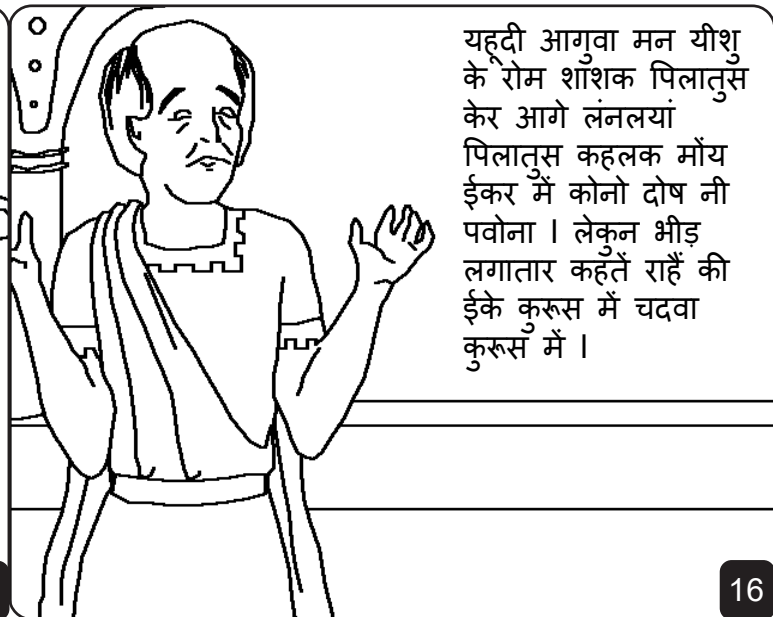 यहूदी आगुवा मन यीशु
के रोम शाशक पिलातुस
केर आगे लंनलयां
पिलातुस कहलक मोंय
ईकर में कोनो दोष नी
पवोना । लेकुन भीड़
लगातार कहतें राहैं की
ईके कुरूस में चदवा
कुरूस में ।
16